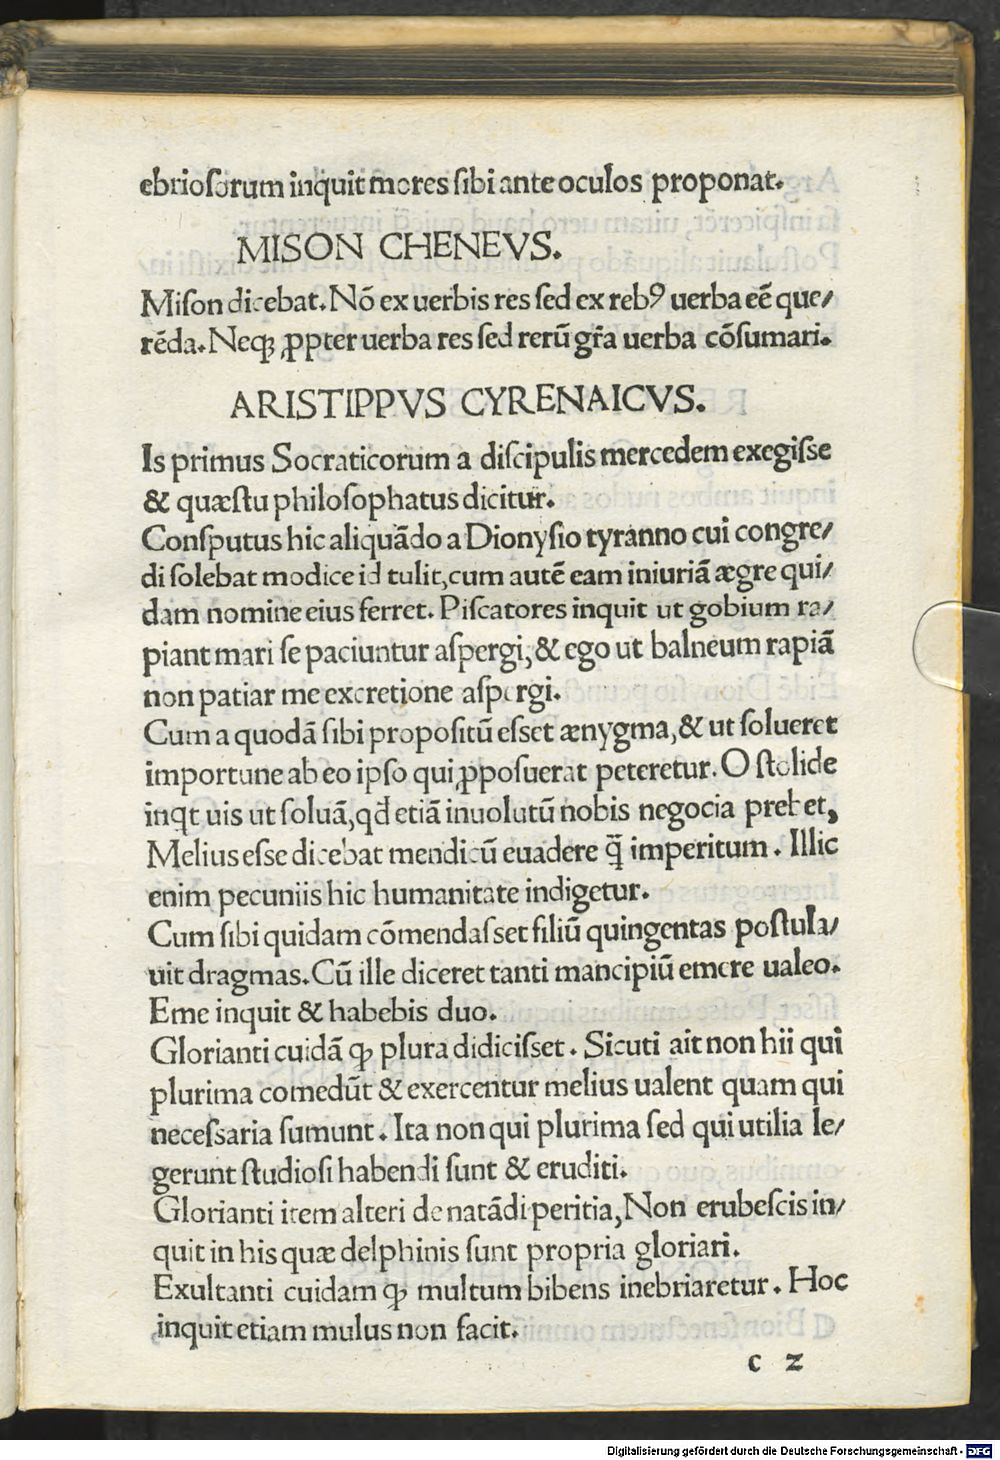 ebrioſorum inquit mores ſibi ante oculos proponat.
MISON CHENEVS.
Miſon dicebat. Nō ex uerbis res ſed ex rebꝰ uerba eē que/
rēda. Neqꝫ ꝓpter uerba res ſed rerū gr̄a uerba cōſumari.
ARISTIPPVS CYRENAICVS.
Is primus Socraticorum a diſcipulis mercedem exegiſse
& quæſtu philoſophatus dicitur.
Conſputus hic aliquādo a Dionyſio tyranno cui congre/
di ſolebat modice id tulit, cum autē eam iniuriā ægre qui/
dam nomine eius ferret. Piſcatores inquit ut gobium ra/
piant mari ſe paciuntur aſpergi, & ego ut balneum rapiā
non patiar me excretione aſpergi.
Cum a quodā ſibi propoſitū eſset ænygma, & ut ſolueret
importune ab eo ipſo qui ꝓpoſuerat peteretur. O ſtolide
inqt uis ut ſoluā, qd̄ etiā inuolutū nobis negocia prebet,
Melius eſse dicebat mendicū euadere q̄̃ imperitum. Illic
enim pecuniis hic humanitate indigetur.
Cum ſibi quidam cōmendaſset filiū quingentas poſtula/
uit dragmas. Cū ille diceret tanti mancipiū emere ualeo.
Eme inquit & habebis duo.
Glorianti cuidā ꝙ plura didiciſset. Sicuti ait non hii qui
plurima comedūt & exercentur melius ualent quam qui
neceſsaria ſumunt. Ita non qui plurima ſed qui utilia le/
gerunt ſtudioſi habendi ſunt & eruditi.
Glorianti item alteri de natādi peritia, Non erubeſcis in/
quit in his quæ delphinis ſunt propria gloriari.
Exultanti cuidam ꝙ multum bibens inebriaretur. Hoc
inquit etiam mulus non facit.
c 2
Digitalisierung gefördert durch die Deutsche Forschungsgemeinschaft - DFG